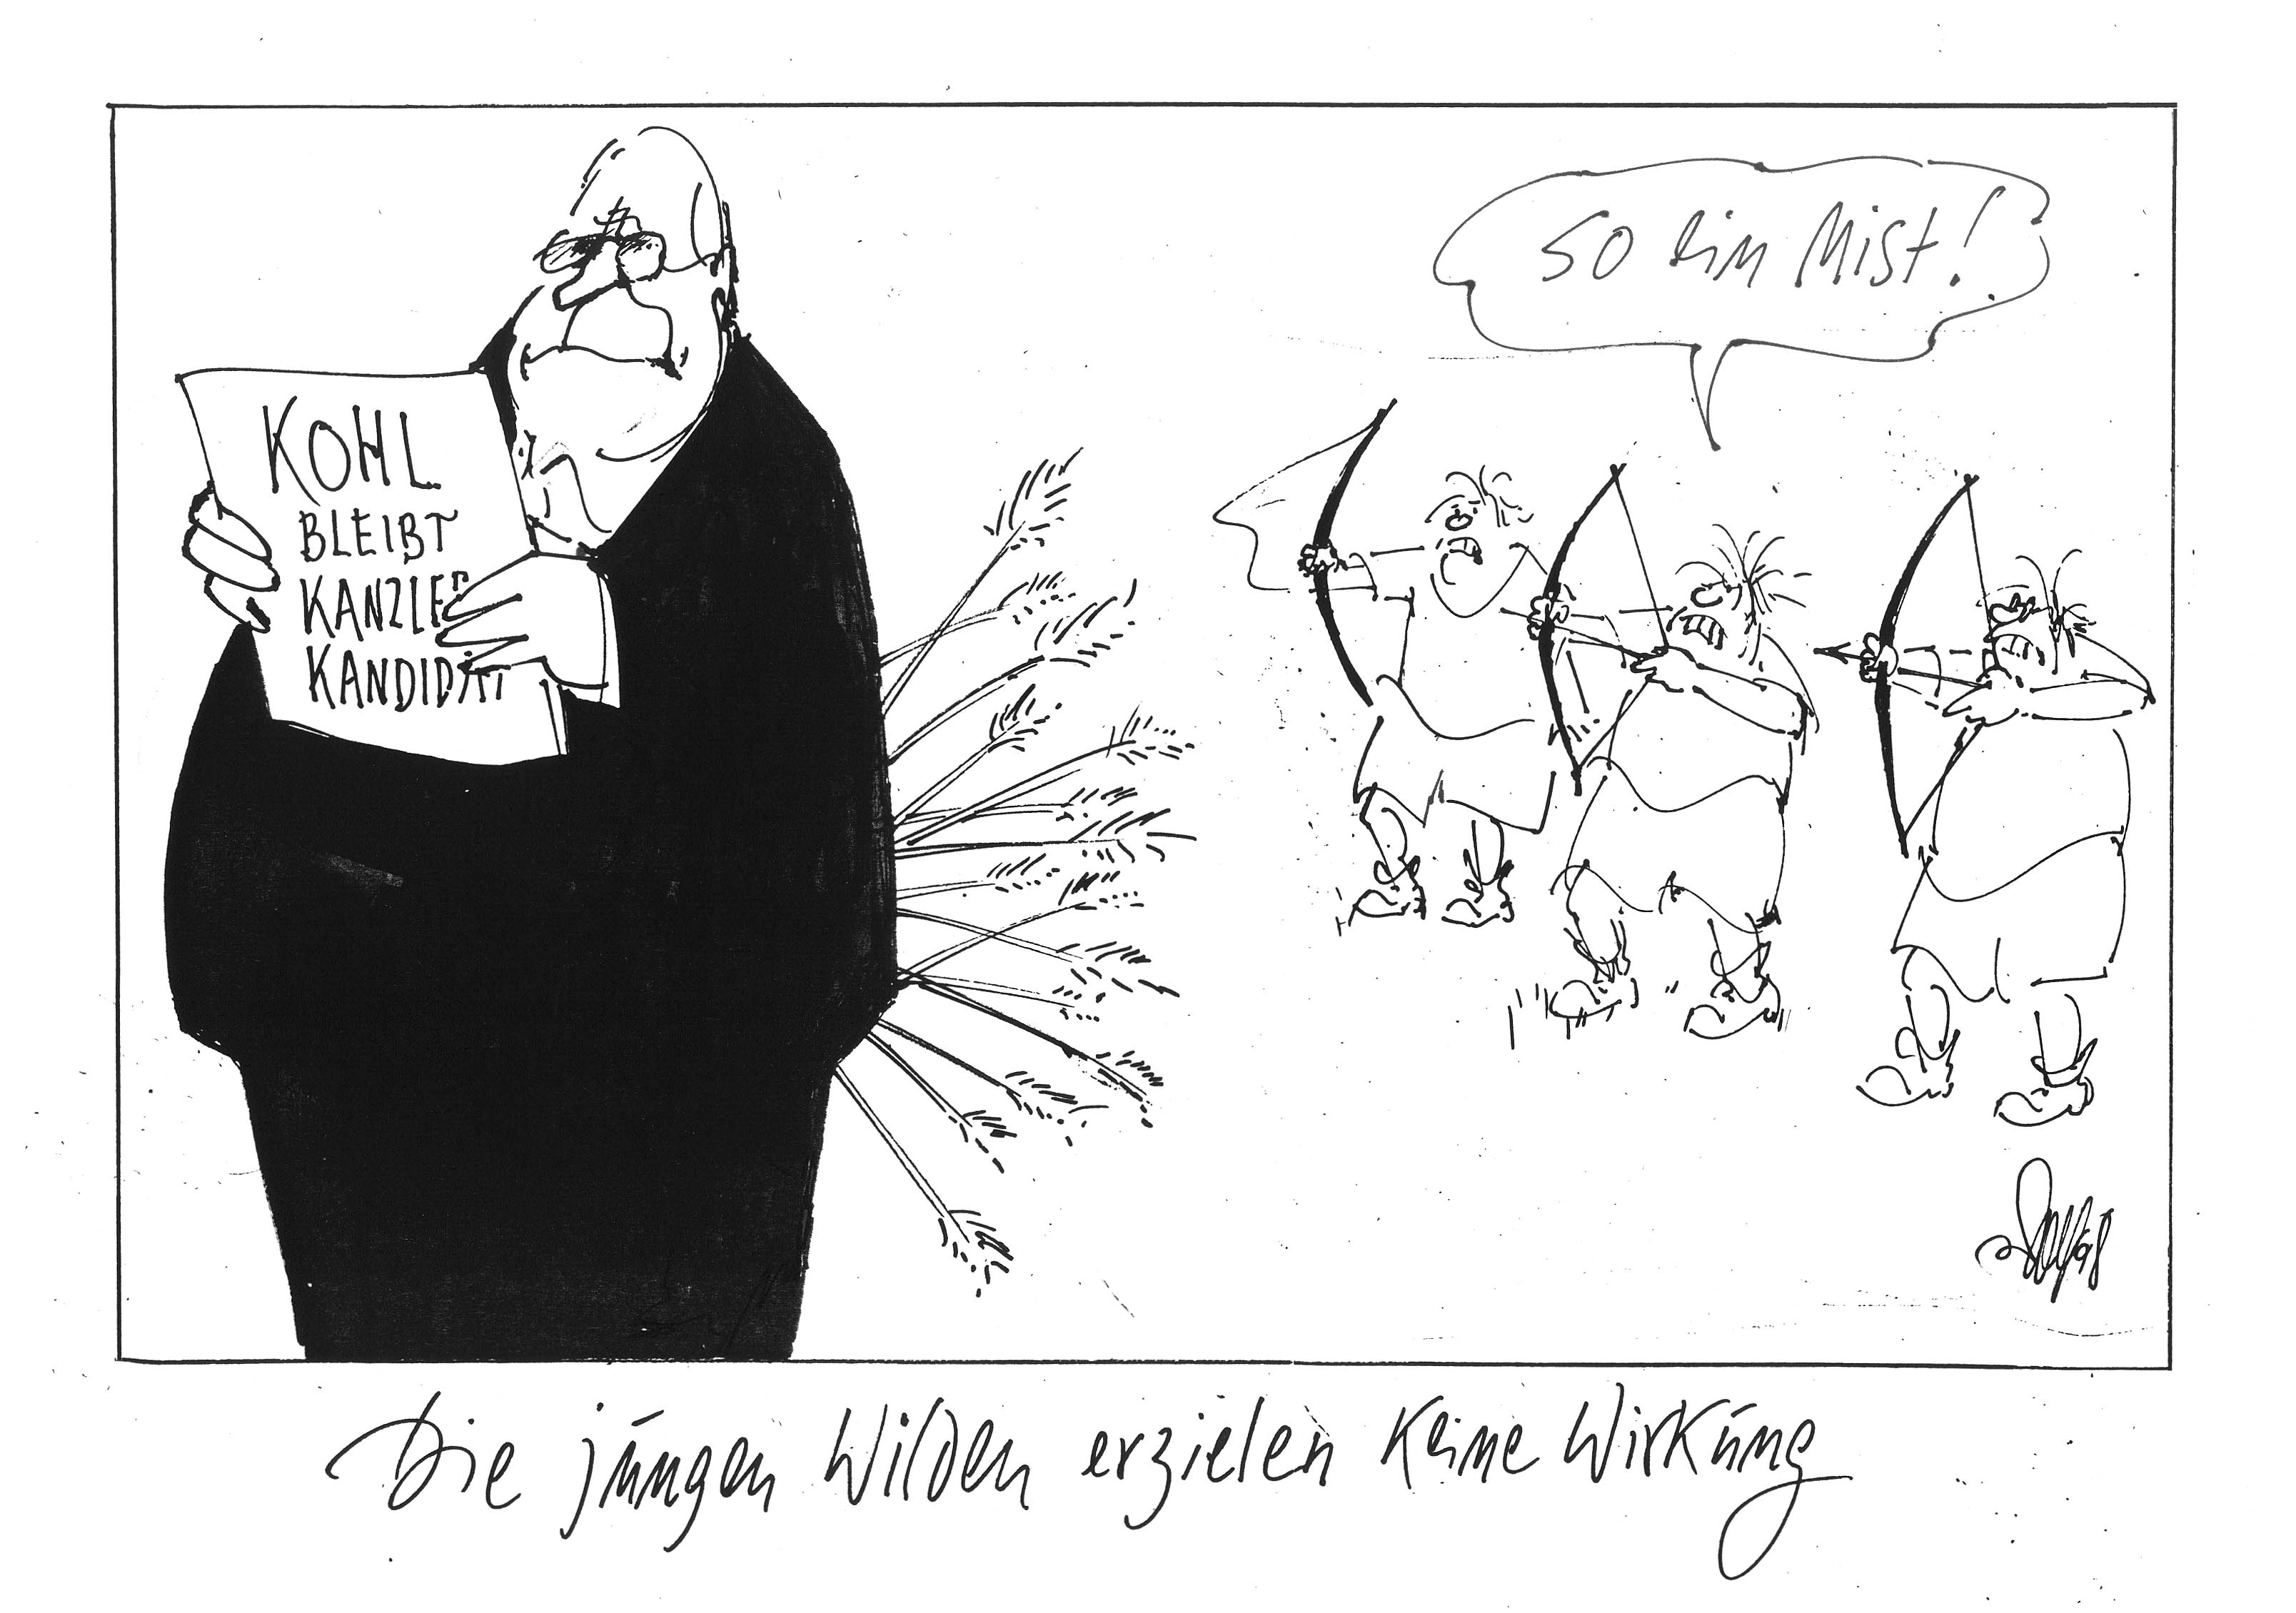 So ein Mist!
KOHL
BLEIBT
KANZLER
KANDIDAT
Die jungen Wilden erzielen keine Wirkung